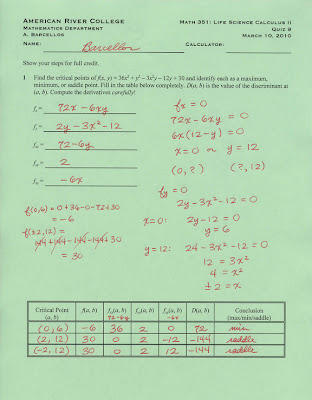 AMERICAN RIVER COLLEGE
MATHEMATICS DEPARTMENT
A. BARCELLOS
MATH 351: LIFE SCIENCE CALCULUS II
QUIZ 9
MARCH 10, 2010
NAME: Barcellos CALCULATOR:
Show your steps for full credit.
1 Find the critical points of f(x, y) = 36x² + y² − 3x²y − 12y + 30 and identify each as a maximum,
minimum, or saddle point. Fill in the table below completely. D(a, b) is the value of the discriminant at
(a, b). Compute the derivatives carefully!
fₓ = 72x − 6xy
f_y = 2y − 3x² − 12
fₓₓ = 72 − 6y
f_yy = 2
f_xy = −6x
f(0,6) = 0 + 36 − 0 − 72 + 30
= −6
f(±2,12) =
144 + 144 − 144 − 144 + 30
= 30
fx = 0
72x − 6xy = 0
6x(12 − y) = 0
x = 0 or y = 12
(0, ?) (?, 12)
fy = 0
2y − 3x² − 12 = 0
x=0: 2y − 12 = 0
y = 6
y=12: 24 − 3x² − 12 = 0
12 = 3x²
4 = x²
±2 = x
Critical Point (a, b) f(a, b) fₓₓ(a, b) f_yy(a, b) f_xy(a, b) D(a, b) Conclusion (max/min/saddle)
72−6y −6x
(0, 6) −6 36 2 0 72 min
(2, 12) 30 0 2 −12 −144 saddle
(−2, 12) 30 0 2 12 −144 saddle